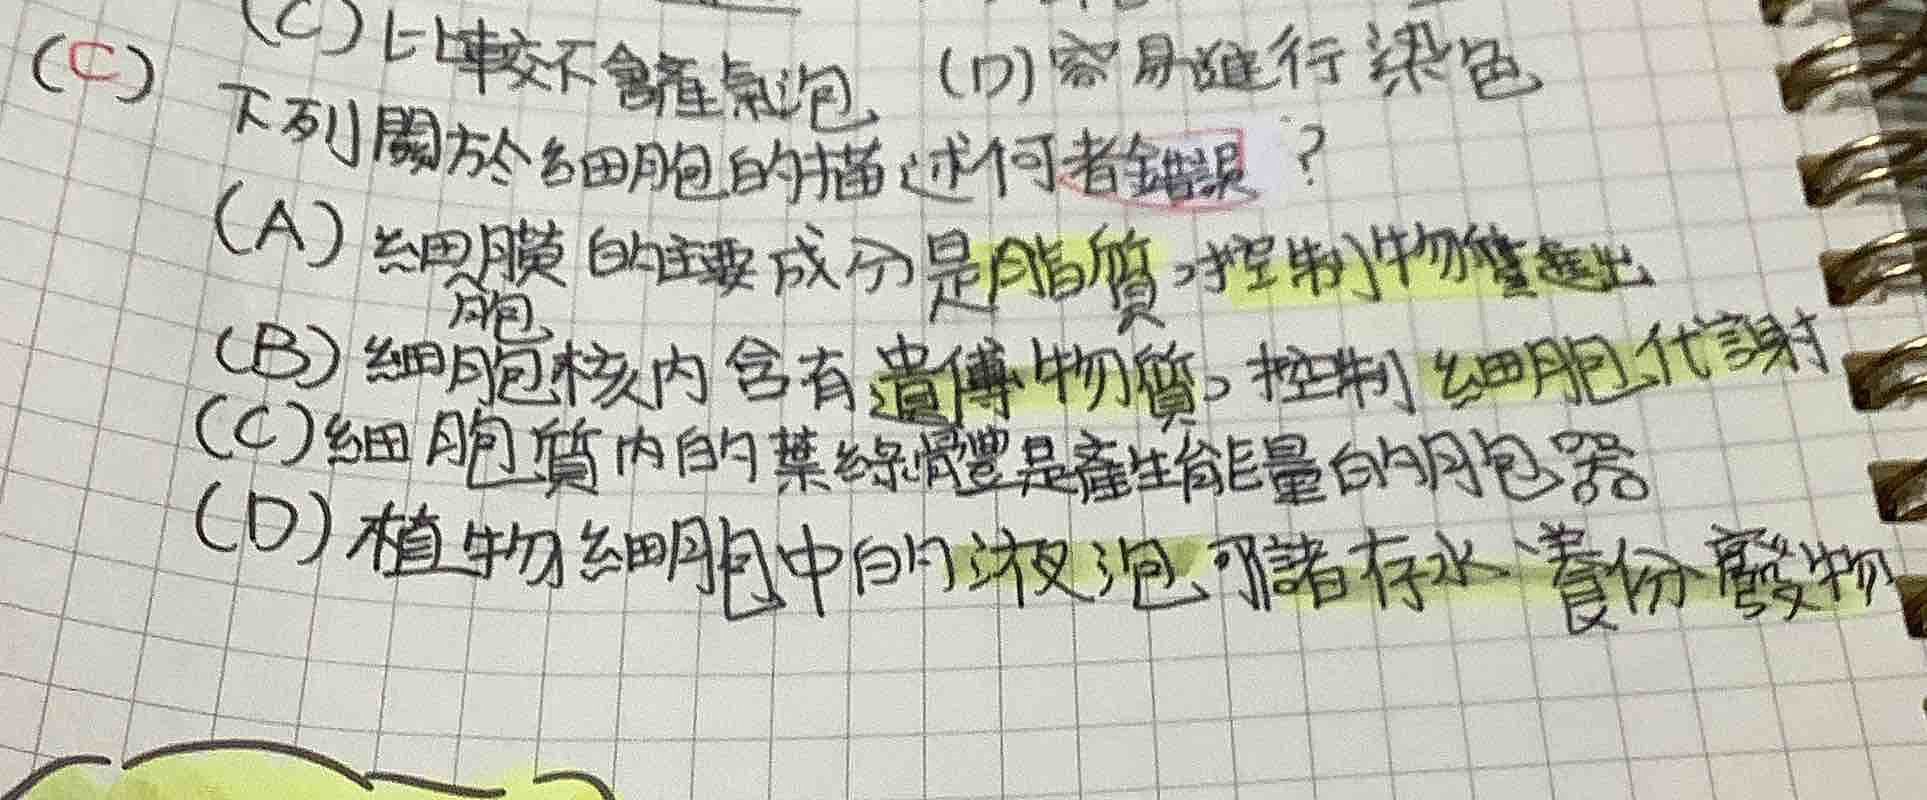 (C) 比較不會產氣泡 (D) 容易進行染色
(C) 下列關於細胞的描述何者錯誤?
(A) 細胞膜的主要成分是脂質,控制物質進出
(B) 細胞核內含有遺傳物質。控制細胞代謝
(C) 細胞質內的葉綠體是產生能量的胞器
(D) 植物細胞中的液泡可諸存水、養份、廢物